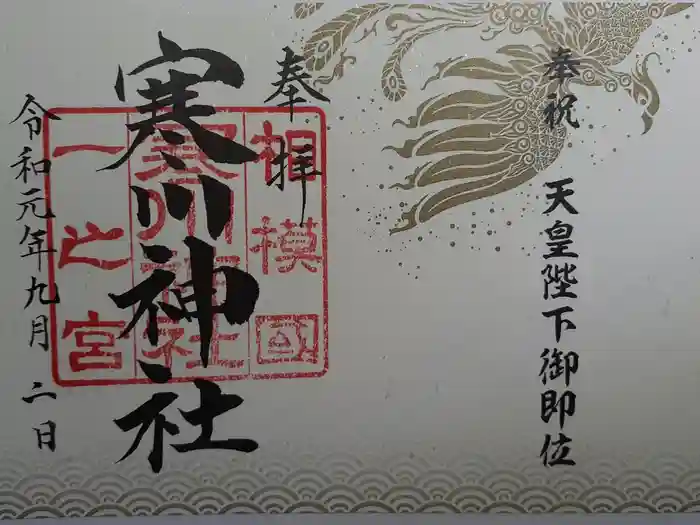 奉祝 天皇陛下御即位
奉拝
相模國
寒川神社
寒川神社
一之宮
令和元年九月二日